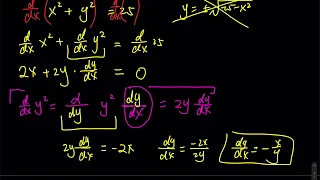 d/dx(x² + y²) = 25)
d/dx x² + d/dx y² = d/dx 25
2x + 2y · dy/dx = 0
d/dx y² = d/dy y² · dy/dx = 2y dy/dx
2y dy/dx = -2x dy/dx = -2x/2y dy/dx = -x/y